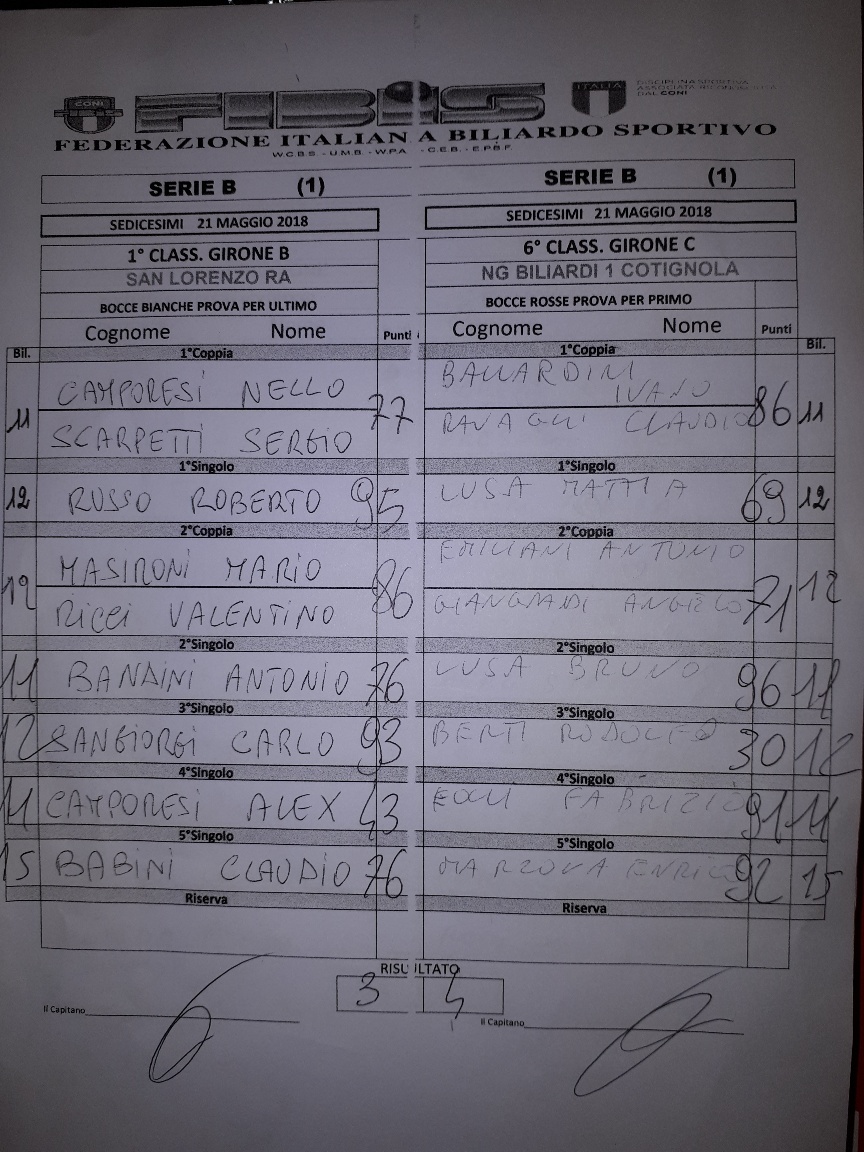 CONI FIBiS ITALIA DISCIPLINA SPORTIVA
ASSOCIATA RICONOSCIUTA
DAL CONI
FEDERAZIONE ITALIANA BILIARDO SPORTIVO
W.C.B.S. - U.M.B. - W.P.A. - C.E.B. - E.P.B.F.
SERIE B (1) SERIE B (1)
SEDICESIMI 21 MAGGIO 2018 SEDICESIMI 21 MAGGIO 2018
1° CLASS. GIRONE B 6° CLASS. GIRONE C
SAN LORENZO RA NG BILIARDI 1 COTIGNOLA
BOCCE BIANCHE PROVA PER ULTIMO BOCCE ROSSE PROVA PER PRIMO
Cognome Nome Punti Cognome Nome Punti
Bil. 1°Coppia 1°Coppia Bil.
CAMPORESI NELLO BALLARDINI IVANO
11 77 86 11
SCARPETTI SERGIO RAVAGLI CLAUDIO
1°Singolo 1°Singolo
12 RUSSO ROBERTO 95 LUSA MATTIA 69 12
2°Coppia 2°Coppia
MASIRONI MARIO EMILIANI ANTONIO
12 86 71 12
RICCI VALENTINO GIANGRANDI ANGELO
2°Singolo 2°Singolo
11 BANDINI ANTONIO 76 LUSA BRUNO 96 11
3°Singolo 3°Singolo
12 SANGIORGI CARLO 93 BERTI RODOLFO 30 12
4°Singolo 4°Singolo
11 CAMPORESI ALEX 43 FABRIZIO 91 11
5°Singolo 5°Singolo
15 BABINI CLAUDIO 76 ENRICO 92 15
Riserva Riserva
RISULTATO
3 4
Il Capitano Il Capitano